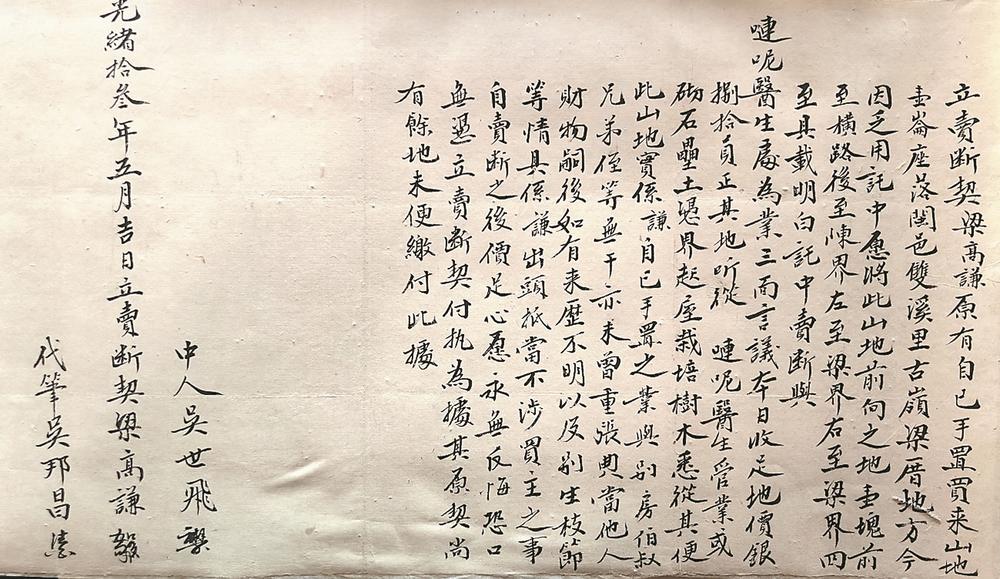 立賣断契梁高謙原有自己手置買来山地
壹崙座落閩邑雙溪里古嶺梁厝地方今
因乏用託中愿將此山地前向之地壹塊前
至橫路後至陳界左至梁界右至梁界四
至具載明白託中賣断與
嗹呢醫生處為業三面言議夲日收足地價銀
捌拾員正其地听從 嗹呢醫生管業或
砌石壘土憑界起屋栽培樹木悉從其便
此山地實係謙自己手置之業與别房伯叔
兄弟侄等無干亦未曾重張典當他人
財物嗣後如有来歷不明以及别生枝節
等情具係謙出頭抵當不涉買主之事
自賣断之後價足心愿永無反悔恐口
無憑立賣断契付执為據其原契尚
有餘地未便繳付此據
光緒拾叁年五月吉日立賣断契梁高謙
中人吳世飛
代筆吳邦昌